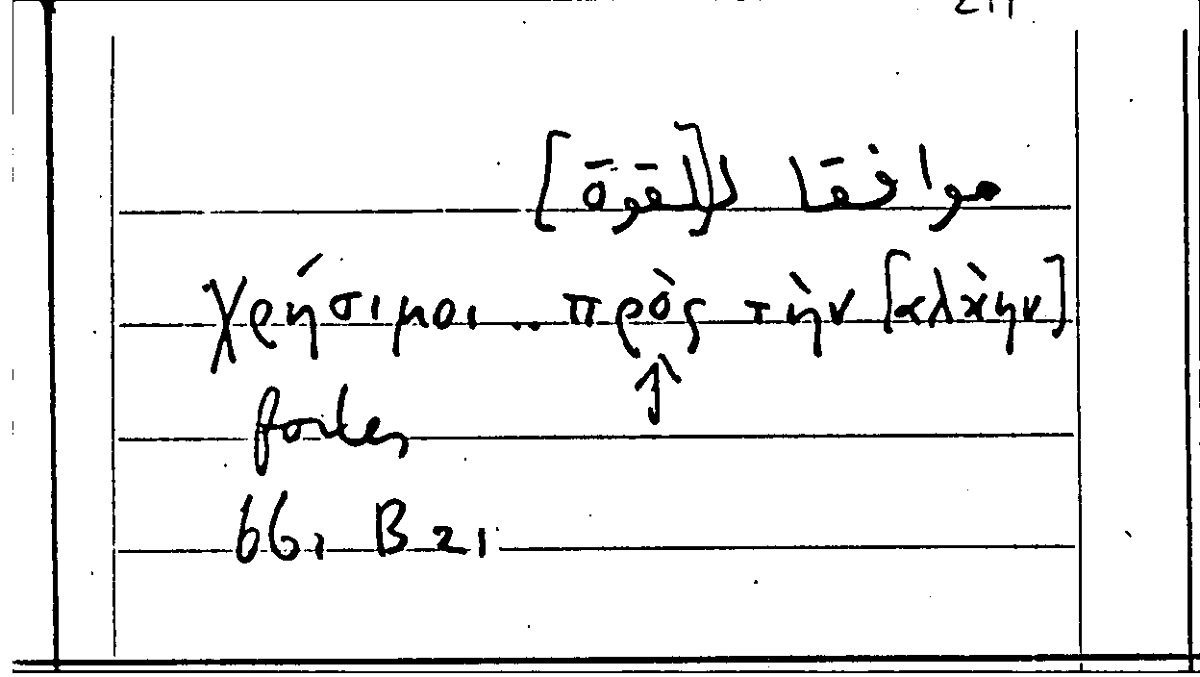 موافقا ل[لقوة]
χρήσιμοι .. πρὸς τὴν [αλκὴν]
↑
fortes
661 B 21